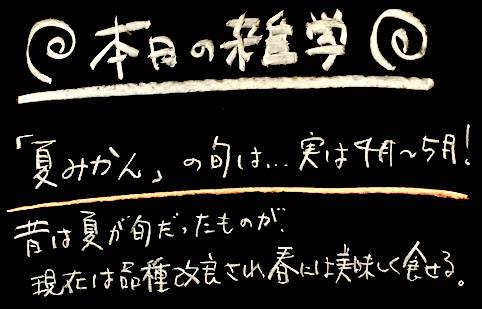 本日の雑学
「夏みかん」の旬は…実は4月～5月!
昔は夏が旬だったものが、
現在は品種改良され春には美味しく食せる。